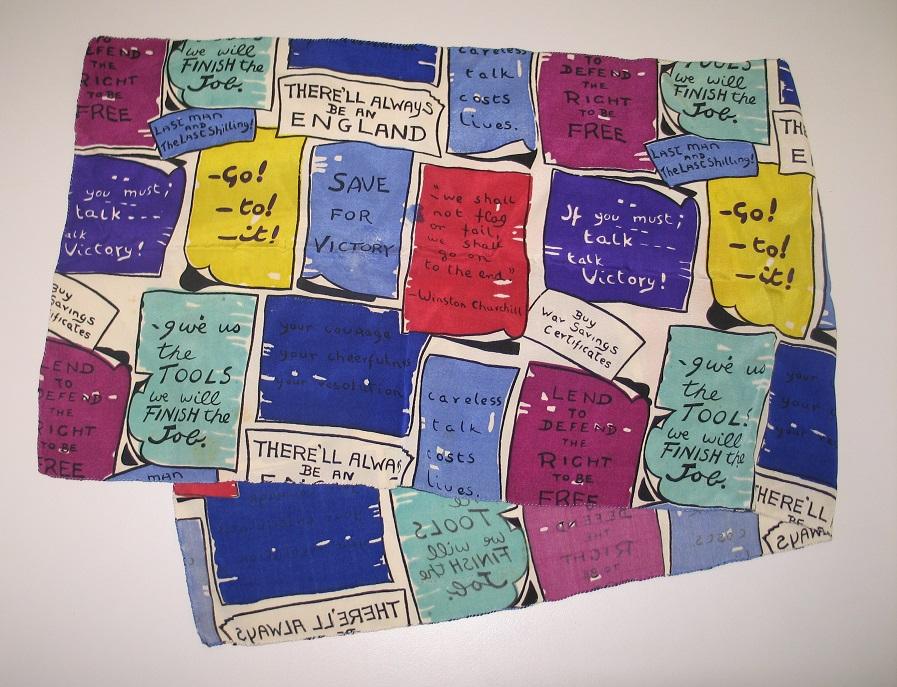 DEFEND
THE
RIGHT
TO BE
FREE
we will
FINISH the
Job.
LAST MAN
AND
The LAST Shilling!
THERE'LL ALWAYS
BE AN
ENGLAND
careless
talk
costs
Lives.
TO
DEFEND
THE
RIGHT
TO BE
FREE
TOOLS
we will
FINISH the
Job.
LAST MAN
AND
The LAST Shilling!
TH
E
you must;
talk---
talk
Victory!
-Go!
-to!
-it!
SAVE
FOR
VICTORY
"we shall
not flag
or fail,
we shall
go on
to the end"
-Winston Churchill
If you must;
talk---
talk
Victory!
-Go!
-to!
-it!
Buy
Savings
ificates
LEND
TO
DEFEND
THE
RIGHT
TO BE
FREE
-give us
the
TOOLS
we will
FINISH the
Job.
your courage
your cheerfulness
your resolution
Buy
War Savings
Certificates
careless
talk
costs
lives.
LEND
TO
DEFEND
THE
RIGHT
TO BE
FREE
-give us
the
TOOL!
we will
FINISH the
Job.
your
your
your re
THERE'LL ALWA
BE AN
MAN
THERE'LL
BE
TOOLS
we will
FINISH the
Job.
DEFEND
THE
RIGHT
TO BE
costs
ALWAYS
THERE'LL ALWAYS